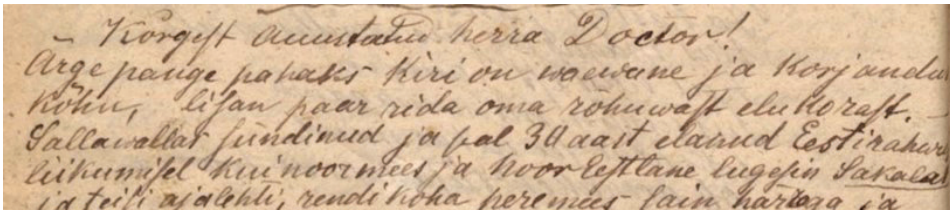 Kõrgest auustatud herra Doctor!
Ärge pange pahaks kiri on waewane ja korjandu
kõhn, lisan paar rida oma rõhuwast elukorast.
Sallawallas sündinud ja pal 30 aast elanud Eesti rahwa
liikumisel kui noormees ja noor Eestlane lugesin Sakalat
ja teisi ajalehti, rendikoha peremees sain härraga ja